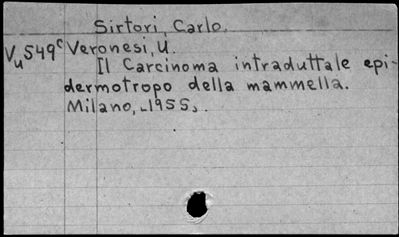 Sirtori, Carlo.
Vu549c Veronesi, U.
Il Carcinoma intraduttale epi-
dermotropo della mammella.
Milano, 1955.